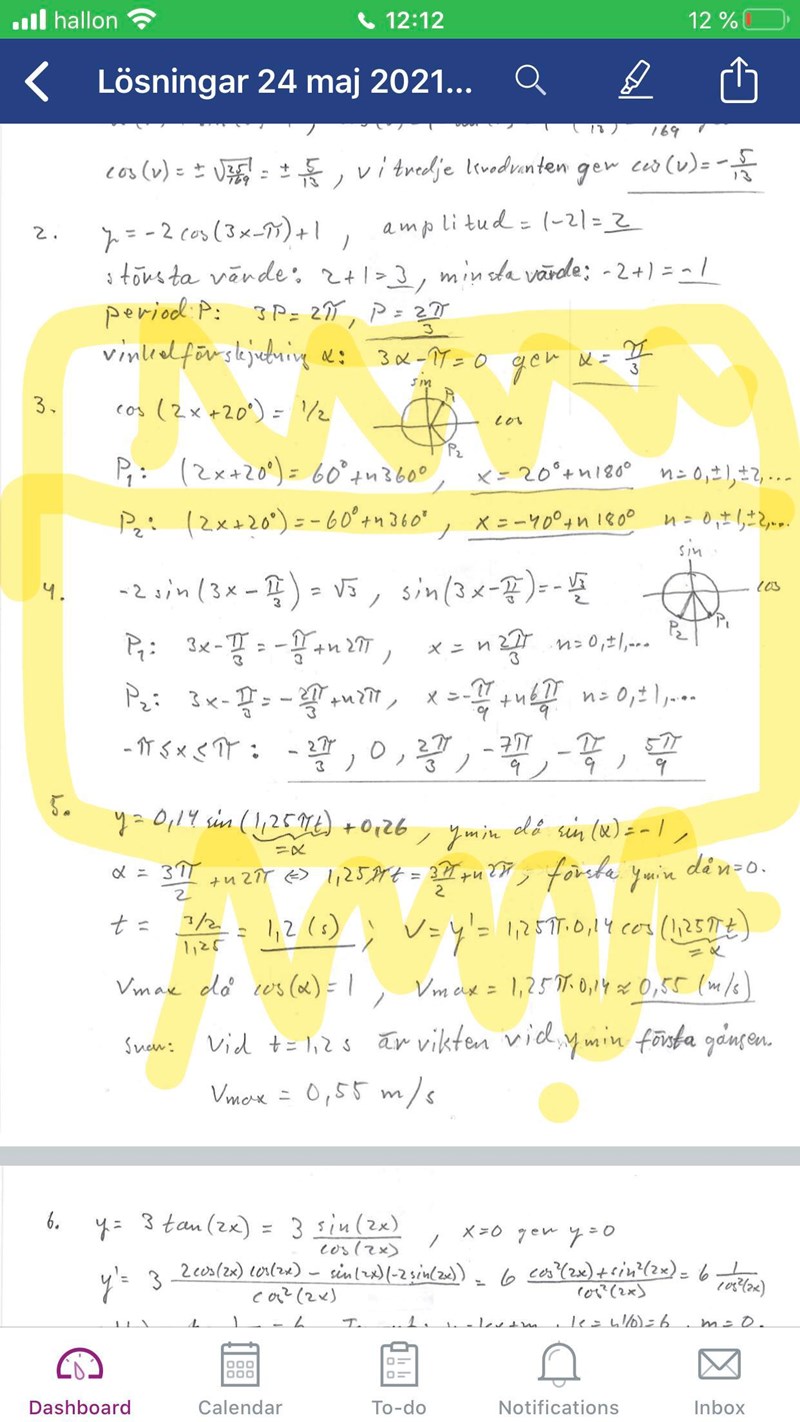 hallon 12:12 12 %
Lösningar 24 maj 2021...
169
cos(v) = ± √25/169 = ± 5/13 , v i tredje kvadranten ger cos(v) = - 5/13
2. y = -2 cos(3x-π)+1 , amplitud = |-2| = 2
största värde: 2+1=3 , minsta värde: -2+1 = -1
period P: 3P = 2π , P = 2π/3
vinkelförskjutning α: 3α-π=0 ger α = π/3
sin
3. cos (2x+20°) = 1/2 P1 cos
P2
P1: (2x+20°) = 60°+n360° , x = 20°+n180° n = 0,±1,±2,...
P2: (2x+20°) = -60°+n360° , x = -40°+n180° n = 0,±1,±2,...
sin
4. -2 sin(3x - π/3) = √3 , sin(3x - π/3) = -√3/2 cos
P2 P1
P1: 3x - π/3 = -π/3 + n2π , x = n 2π/3 n=0,±1,...
P2: 3x - π/3 = -2π/3 + n2π , x = -π/9 + n6π/9 n = 0,±1,...
-π ≤ x ≤ π : -2π/3 , 0 , 2π/3 , -7π/9 , -π/9 , 5π/9
5. y = 0,14 sin(1,25πt) + 0,26 , ymin då sin(α) = -1 ,
=α
α = 3π/2 + n2π ⇔ 1,25πt = 3π/2 + n2π , första ymin då n=0.
t = 3/2/1,25 = 1,2 (s) ; V = y' = 1,25π·0,14 cos(1,25πt)
=α
Vmax då cos(α) = 1 , Vmax = 1,25π·0,14 ≈ 0,55 (m/s)
Svar: Vid t = 1,2 s är vikten vid ymin första gången.
Vmax = 0,55 m/s
6. y = 3 tan(2x) = 3 sin(2x)/cos(2x) , x=0 ger y=0
y' = 3 2cos(2x) cos(2x) - sin(2x)(-2sin(2x))/cos²(2x) = 6 cos²(2x)+sin²(2x)/cos²(2x) = 6 1/cos²(2x)
Dashboard Calendar To-do Notifications Inbox